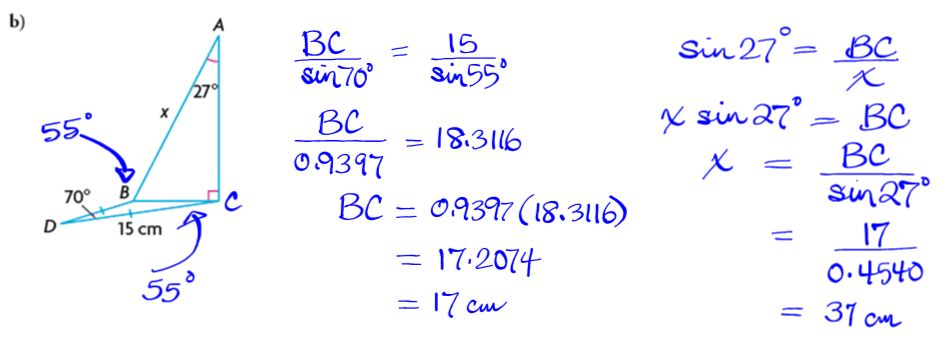 b)
A
27°
x
55°
B
70°
C
D
15 cm
55°
BC / sin70° = 15 / sin55°
BC / 0.9397 = 18.3116
BC = 0.9397(18.3116)
= 17.2074
= 17 cm
sin27° = BC / x
x sin27° = BC
x = BC / sin27°
= 17 / 0.4540
= 37 cm